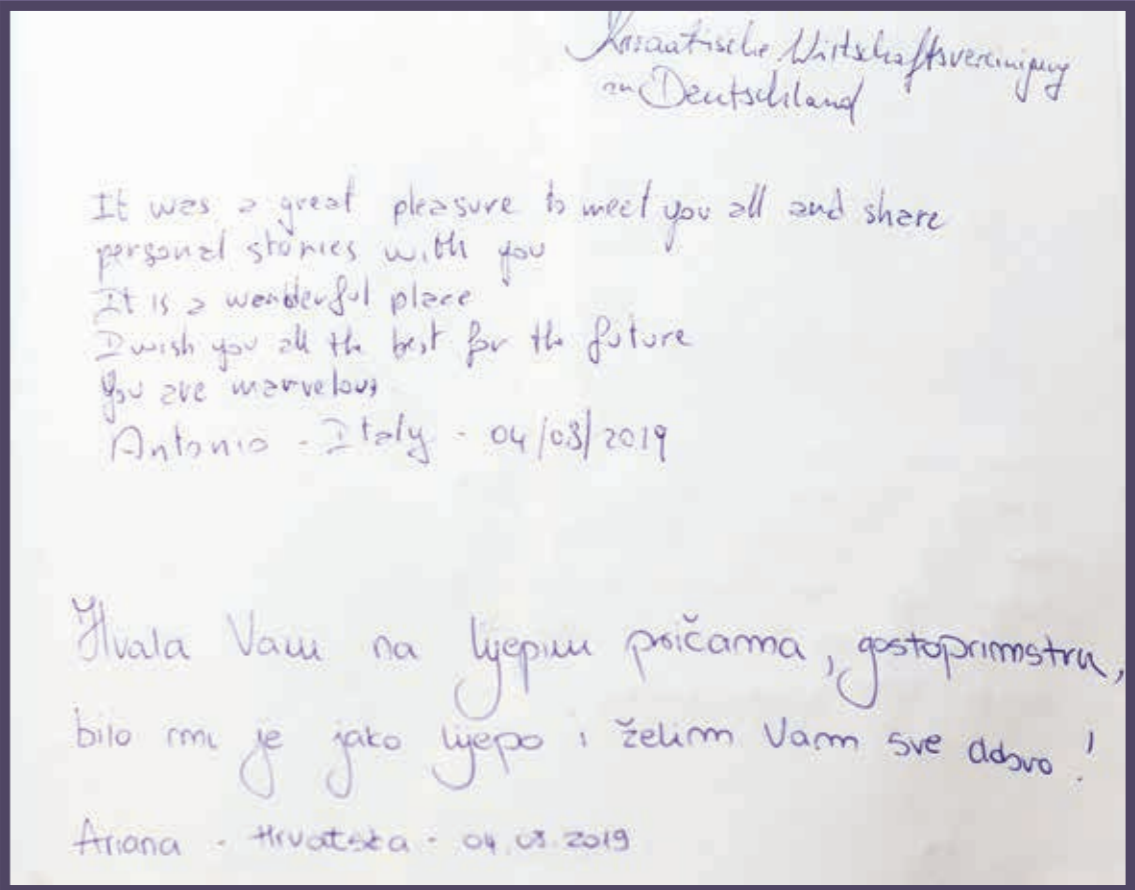 Kroatische Wirtschaftsvereinigung
in Deutschland
It was a great pleasure to meet you all and share
personal stories with you
It is a wonderful place
I wish you all the best for the future
You are marvelous
Antonio - Italy - 04/03/2019
Hvala Vam na lijepim pričama, gostoprimstvu,
bilo mi je jako lijepo i želim Vam sve dobro!
Ariana - Hrvatska - 04.03.2019